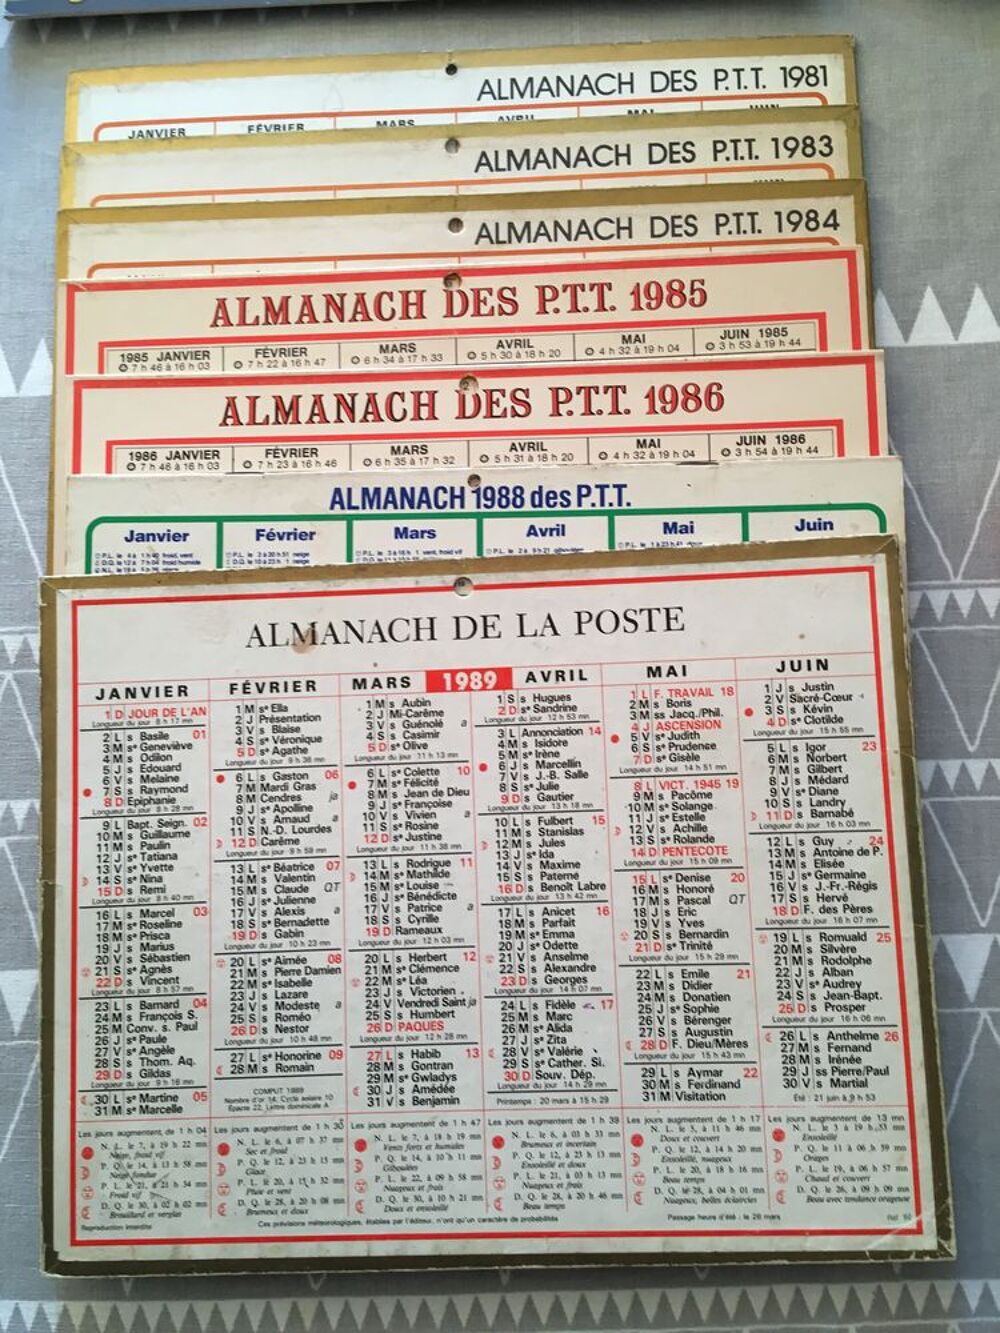 ALMANACH DES P.T.T. 1981
JANVIER FÉVRIER MARS AVRIL MAI JUIN
ALMANACH DES P.T.T. 1983
ALMANACH DES P.T.T. 1984
ALMANACH DES P.T.T. 1985
1985 JANVIER FÉVRIER MARS AVRIL MAI JUIN 1985
7 h 46 à 16 h 03 7 h 22 à 16 h 47 6 h 34 à 17 h 33 5 h 30 à 18 h 20 4 h 32 à 19 h 04 3 h 53 à 19 h 44
ALMANACH DES P.T.T. 1986
1986 JANVIER FÉVRIER MARS AVRIL MAI JUIN 1986
7 h 46 à 16 h 03 7 h 23 à 16 h 46 6 h 35 à 17 h 32 5 h 31 à 18 h 20 4 h 32 à 19 h 04 3 h 54 à 19 h 44
ALMANACH 1988 des P.T.T.
Janvier Février Mars Avril Mai Juin
ALMANACH DE LA POSTE
JANVIER FÉVRIER MARS 1989 AVRIL MAI JUIN
1 D JOUR DE L'AN
Longueur du jour 8 h 17 mn
2 L s Basile 01
3 M sᵉ Geneviève
4 M s Odilon
5 J s Edouard
6 V s Melaine
7 S s Raymond
8 D Epiphanie
Longueur du jour 8 h 28 mn
9 L Bapt. Seign. 02
10 M s Guillaume
11 M s Paulin
12 J sᵉ Tatiana
13 V sᵉ Yvette
14 S sᵉ Nina
15 D s Remi
Longueur du jour 8 h 40 mn
16 L s Marcel 03
17 M sᵉ Roseline
18 M sᵉ Prisca
19 J s Marius
20 V s Sébastien
21 S sᵉ Agnès
22 D s Vincent
Longueur du jour 8 h 57 mn
23 L s Barnard 04
24 M s François S.
25 M Conv. s. Paul
26 J sᵉ Paule
27 V sᵉ Angèle
28 S s Thom. Aq.
29 D s Gildas
Longueur du jour 9 h 16 mn
30 L sᵉ Martine 05
31 M sᵉ Marcelle
1 M sᵉ Ella
2 J Présentation
3 V s Blaise
4 S sᵉ Véronique
5 D sᵉ Agathe
Longueur du jour 9 h 38 mn
6 L s Gaston 06
7 M Mardi Gras
8 M Cendres ja
9 J sᵉ Apolline
10 V s Arnaud a
11 S N.-D. Lourdes
12 D Carême
Longueur du jour 9 h 59 mn
13 L sᵉ Béatrice 07
14 M s Valentin
15 M s Claude QT
16 J sᵉ Julienne
17 V s Alexis a
18 S sᵉ Bernadette
19 D s Gabin
Longueur du jour 10 h 23 mn
20 L sᵉ Aimée 08
21 M s Pierre Damien
22 M sᵉ Isabelle
23 J s Lazare
24 V s Modeste a
25 S s Roméo
26 D s Nestor
Longueur du jour 10 h 48 mn
27 L sᵉ Honorine 09
28 M s Romain
COMPUT 1989
Nombre d'or 14, Cycle solaire 10
Epacte 22, Lettre dominicale A
1 M s Aubin
2 J Mi-Carême
3 V s Guénolé a
4 S s Casimir
5 D sᵉ Olive
Longueur du jour 11 h 13 mn
6 L sᵉ Colette 10
7 M sᵉ Félicité
8 M s Jean de Dieu
9 J sᵉ Françoise
10 V s Vivien a
11 S sᵉ Rosine
12 D sᵉ Justine
Longueur du jour 11 h 38 mn
13 L s Rodrigue 11
14 M sᵉ Mathilde
15 M sᵉ Louise
16 J sᵉ Bénédicte
17 V s Patrice a
18 S s Cyrille
19 D Rameaux
Longueur du jour 12 h 03 mn
20 L s Herbert 12
21 M s Clémence
22 M sᵉ Léa
23 J s Victorien
24 V Vendredi Saint ja
25 S s Humbert
26 D PAQUES
Longueur du jour 12 h 28 mn
27 L s Habib 13
28 M s Gontran
29 M sᵉ Gwladys
30 J s Amédée
31 V s Benjamin
1 S s Hugues
2 D sᵉ Sandrine
Longueur du jour 12 h 53 mn
3 L Annonciation 14
4 M s Isidore
5 M sᵉ Irène
6 J s Marcellin
7 V s J.-B. Salle
8 S sᵉ Julie
9 D s Gautier
Longueur du jour 13 h 18 mn
10 L s Fulbert 15
11 M s Stanislas
12 M s Jules
13 J sᵉ Ida
14 V s Maxime
15 S s Paterne
16 D s Benoît Labre
Longueur du jour 13 h 42 mn
17 L s Anicet 16
18 M s Parfait
19 M sᵉ Emma
20 J sᵉ Odette
21 V s Anselme
22 S s Alexandre
23 D s Georges
Longueur du jour 14 h 07 mn
24 L s Fidèle 17
25 M s Marc
26 M sᵉ Alida
27 J sᵉ Zita
28 V sᵉ Valérie
29 S sᵉ Cather. Si.
30 D Souv. Dép.
Longueur du jour 14 h 29 mn
Printemps : 20 mars à 15 h 29
1 L F. TRAVAIL 18
2 M s Boris
3 M ss Jacq./Phil.
4 J ASCENSION
5 V sᵉ Judith
6 S sᵉ Prudence
7 D sᵉ Gisèle
Longueur du jour 14 h 51 mn
8 L VICT. 1945 19
9 M s Pacôme
10 M sᵉ Solange
11 J sᵉ Estelle
12 V s Achille
13 S sᵉ Rolande
14 D PENTECOTE
Longueur du jour 15 h 09 mn
15 L sᵉ Denise 20
16 M s Honoré
17 M s Pascal QT
18 J s Eric
19 V s Yves
20 S s Bernardin
21 D sᵉ Trinité
Longueur du jour 15 h 29 mn
22 L s Emile 21
23 M s Didier
24 M s Donatien
25 J sᵉ Sophie
26 V s Bérenger
27 S s Augustin
28 D F. Dieu/Mères
Longueur du jour 15 h 43 mn
29 L s Aymar 22
30 M s Ferdinand
31 M Visitation
1 J s Justin
2 V Sacré-Coeur
3 S s Kévin
4 D sᵉ Clotilde
Longueur du jour 15 h 55 mn
5 L s Igor 23
6 M s Norbert
7 M s Gilbert
8 J s Médard
9 V sᵉ Diane
10 S s Landry
11 D s Barnabé
Longueur du jour 16 h 03 mn
12 L s Guy 24
13 M s Antoine de P.
14 M s Elisée
15 J sᵉ Germaine
16 V s J.-Fr.-Régis
17 S s Hervé
18 D F. des Pères
Longueur du jour 16 h 07 mn
19 L s Romuald 25
20 M s Silvère
21 M s Rodolphe
22 J s Alban
23 V sᵉ Audrey
24 S s Jean-Bapt.
25 D s Prosper
Longueur du jour 16 h 06 mn
26 L s Anthelme 26
27 M s Fernand
28 M s Irénée
29 J ss Pierre/Paul
30 V s Martial
Été : 21 juin à 9 h 53
Les jours augmentent de 1 h 04
N. L. le 7, à 19 h 22 mn
Neige, froid vif
P. Q. le 14, à 13 h 58 mn
Neige fondue
P. L. le 21, à 21 h 34 mn
Froid vif
D. Q. le 30, à 02 h 02 mn
Brouillard et verglas
Les jours augmentent de 1 h 30
N. L. le 6, à 07 h 37 mn
Sec et froid
P. Q. le 12, à 23 h 15 mn
Glace
P. L. le 20, à 15 h 32 mn
Pluie et vent
D. Q. le 28, à 20 h 08 mn
Brumeux et doux
Les jours augmentent de 1 h 47
N. L. le 7, à 18 h 19 mn
Vents forts et humides
P. Q. le 14, à 10 h 11 mn
Giboulées
P. L. le 22, à 09 h 58 mn
Nuageux et frais
D. Q. le 30, à 10 h 21 mn
Doux et ensoleillé
Les jours augmentent de 1 h 39
N. L. le 6, à 03 h 33 mn
Brumeux et incertain
P. Q. le 12, à 23 h 13 mn
Ensoleillé et doux
P. L. le 21, à 03 h 13 mn
Nuageux et frais
D. Q. le 28, à 20 h 46 mn
Beau temps
Les jours augmentent de 1 h 17
N. L. le 5, à 11 h 46 mn
Doux et couvert
P. Q. le 12, à 14 h 20 mn
Ensoleillé, nuageux
P. L. le 20, à 18 h 16 mn
Beau temps
D. Q. le 28, à 04 h 01 mn
Nuageux, belles éclaircies
Les jours augmentent de 13 mn
N. L. le 3 à 19 h 53 mn
Ensoleillé
P. Q. le 11 à 06 h 59 mn
Orages
P. L. le 19, à 06 h 57 mn
Chaud et couvert
D. Q. le 26, à 09 h 09 mn
Beau avec tendance orageuse
Reproduction interdite
Ces prévisions météorologiques, établies par l'éditeur, n'ont qu'un caractère de probabilités
Passage heure d'été : le 26 mars